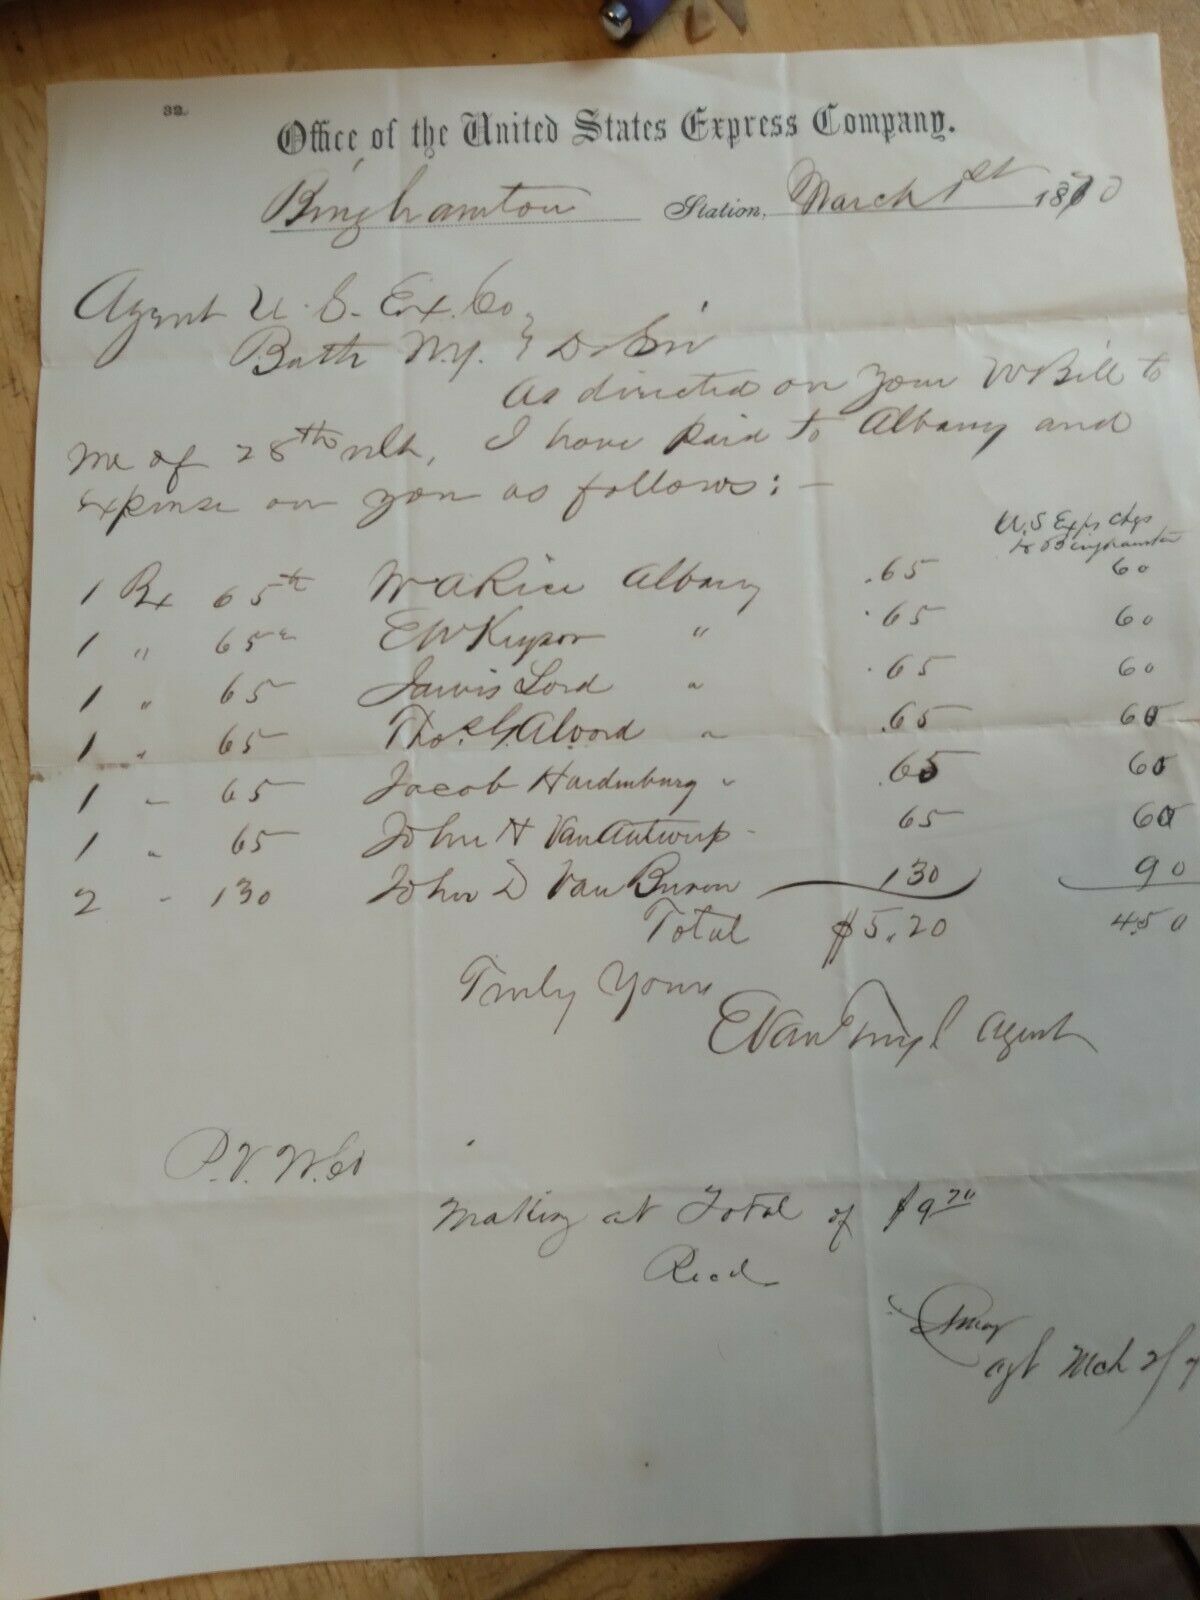 32.
Office of the United States Express Company.
Binghamton Station, March 1st 1870
Agent U.S. Ex. Co,
Bath N.Y. } D Sir
As directed on your W Bill to
me of 28th ult, I have paid to Albany and
expense on you as follows: —
U.S Exps Chgs
to Binghamton
1 Bx 65 W A Rice Albany .65 60
1 " 65 E W " .65 60
1 " 65 Jarvis Lord " .65 60
1 " 65 Thos. G. Alvord " .65 60
1 " 65 Jacob Hardenburg " .65 60
1 " 65 John H Van Antwerp " 65 60
2 " 130 John D Van Buren 130 90
Total $5.20 4.50
Truly Yours
E Van Agent
P.V. W.Co
Making at Total of $9 70
Recd
agt Mch 2/7